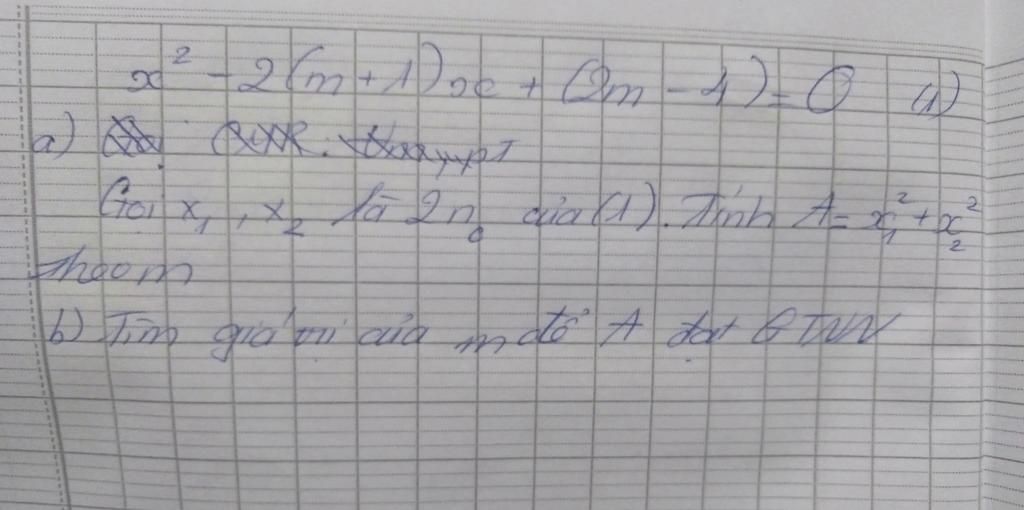 x² - 2(m + 1)x + (2m - 4) = 0 (1)
a)
Gọi x₁, x₂ là 2n₀ của (1). Tính A = x₁² + x₂²
theo m
b) Tìm giá trị của m để A đạt GTNN